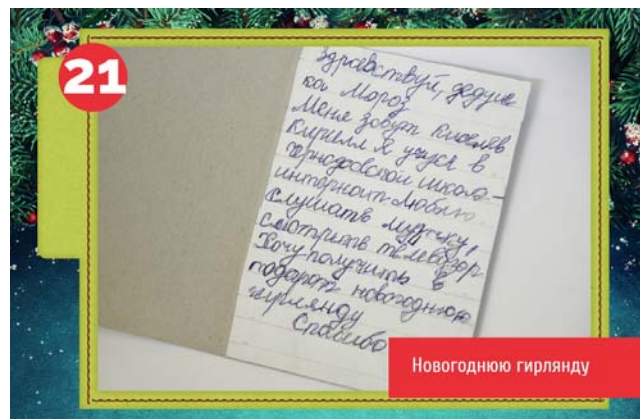 21
Здравствуй, дедуш
ка Мороз
Меня зовут Киселёв
Кирилл я учуся в
школе-
интернат Люблю
слушать музыку,
смотрить телевизор
Хочу получить в
подарок новогоднюю
гирлянду
Спасибо
Новогоднюю гирлянду